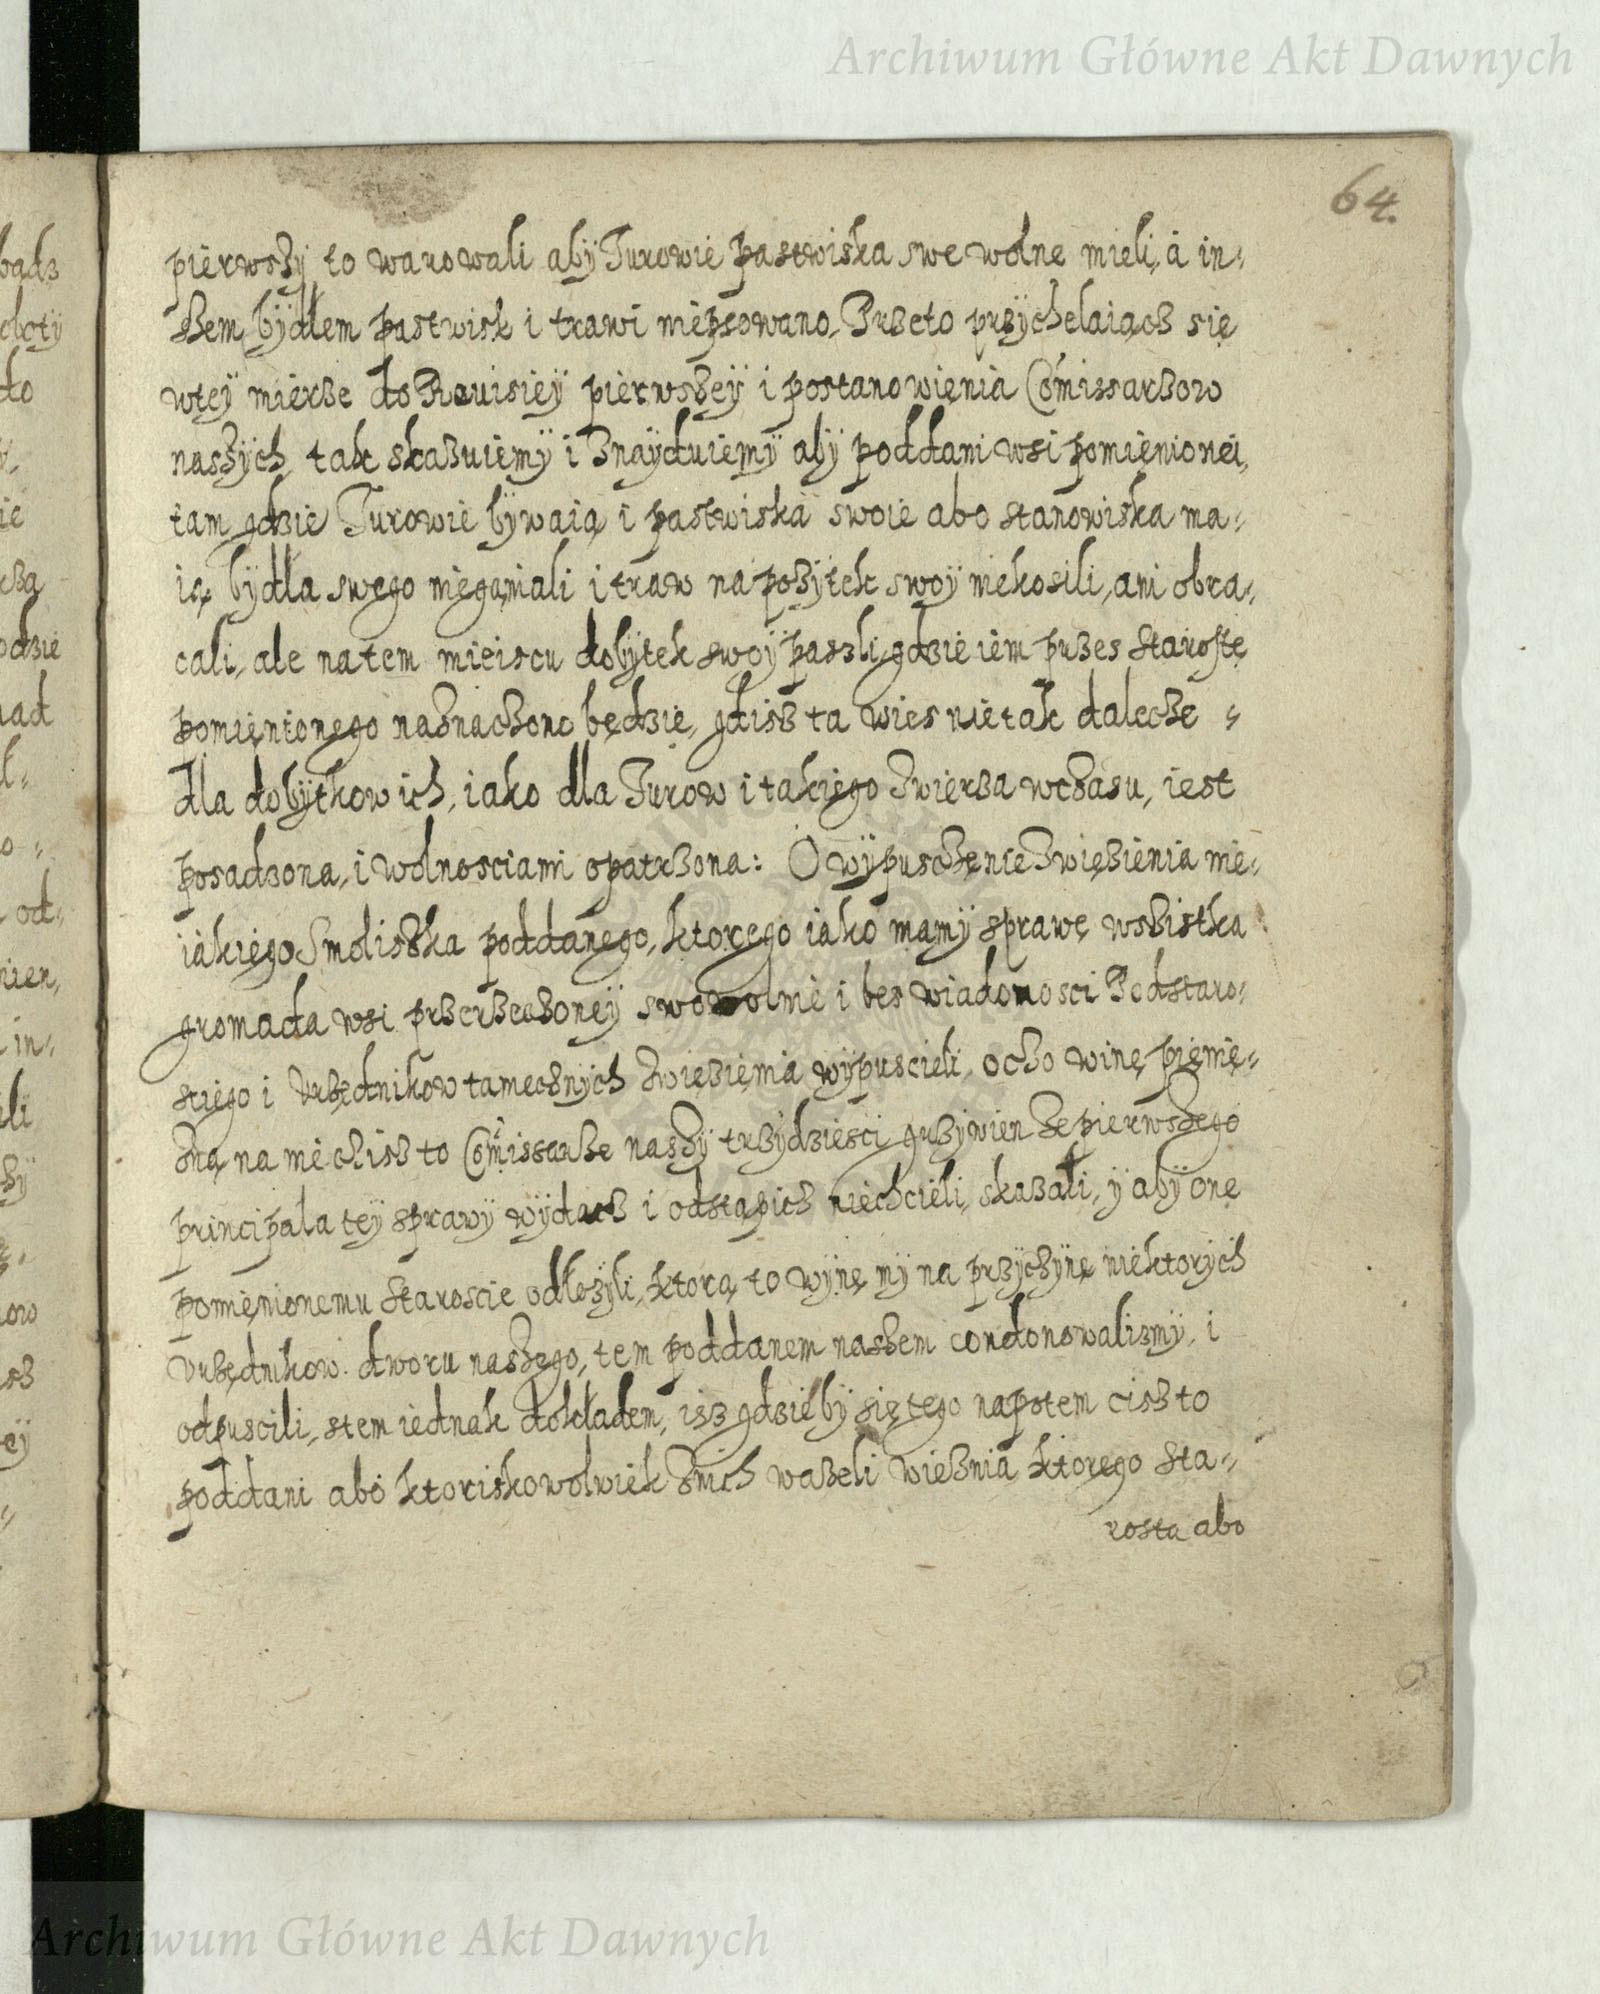 Archiwum Główne Akt Dawnych
64.
pierwszÿ to warowali abÿ Turowie pastwiska swe wolne mieli, a in-
szem bÿdłem pastwisk i trawi niepsowano, Przeto przÿchelaiącz się
wteÿ mierze do Reuisieÿ pierwszeÿ i postanowięnia Commissarzow
naszÿch, tak skazuiemÿ i znaÿduiemÿ abÿ poddani wsi pomięnionei,
tam gdzie Turowie bÿwaią i pastwiska swoie abo stanowiska ma-
ią bÿdła swego nieganiali i traw na pozÿtek swoÿ niekosili, ani obra-
cali, ale na tem mieiscu dobÿtek swoÿ paszli, gdzie iem przes Starostę
pomięnionego naznaczono będzie, gdisz ta wies nie tak dalecze
dla dobÿtkow ich, iako dla Turow i takiego zwierza wczasu, iest
posadzona, i wolnosciami opatrzona: O wÿpusczęnie zwięzienia nie-
iakiego Smoliszka poddanego, ktorego iako mamÿ sprawę wszistka
gromada wsi przerzeczoneÿ swowolnie i bes wiadomosci Podstaro-
sciego i Vrzędnikow tamecznÿch zwięzięnia wÿpuscieli, oczo winę pięnię-
zną na nie cisz to Commissarze naszÿ trzÿdziesci grzÿwien ze pierwszego
principala teÿ sprawÿ wÿdacz i odstąpicz niechcieli, skazali, ÿ abÿ onę
pomięnionemu Staroscie odłozÿli, ktorą to wÿnę mÿ na przÿczÿnę niektorÿch
Vrzędnikow dworu naszego, tem poddanem naszem condonowalismÿ, i
odpuscili, stem iednak dokładem, isz gdzieby się tego napotem cisz to
poddani abo ktoriskowolwiek znich wazeli wieznia ktorego sta-
rosta abo
Archiwum Główne Akt Dawnych